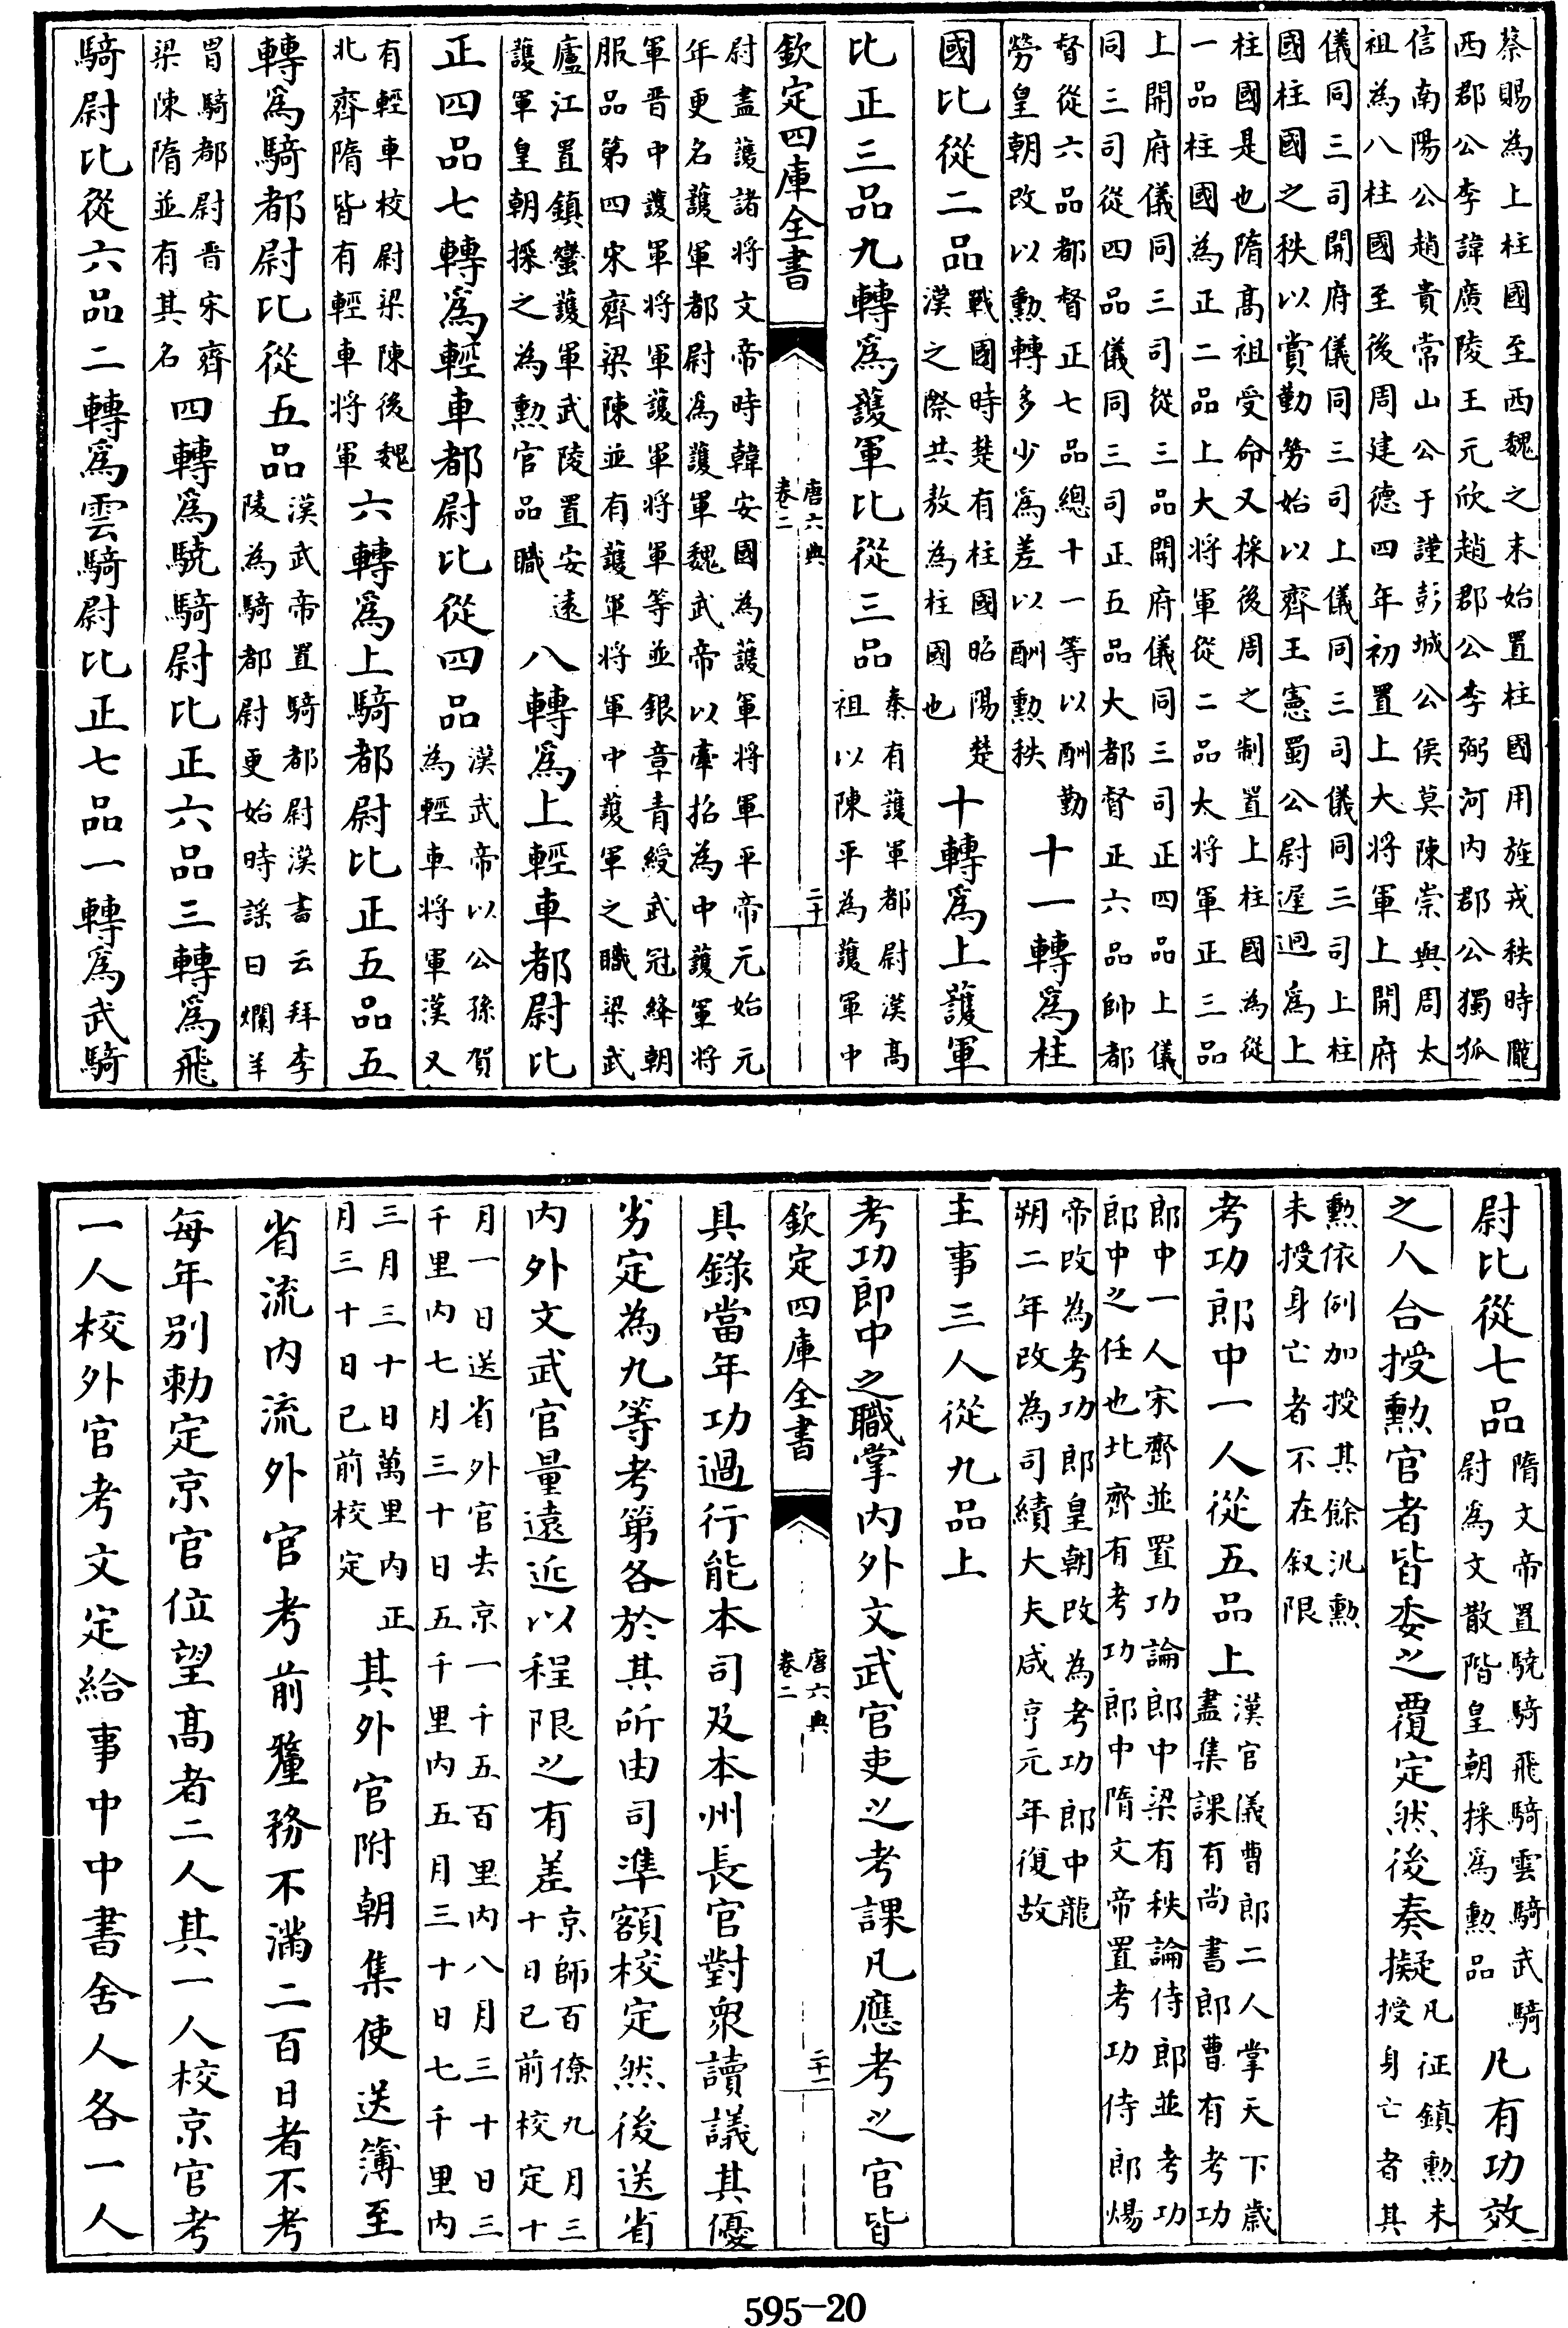 蔡賜為上柱國至西魏之末始置柱國用旌戎秩時隴
西郡公李諱廣陵王元欣趙郡公李弼河内郡公獨狐
信南陽公趙貴常山公于謹彭城公侯莫陳崇與周太
祖為八柱國至後周建德四年初置上大將軍上開府
儀同三司開府儀同三司上儀同三司儀同三司上柱
國柱國之秩以賞勤勞始以齊王憲蜀公尉遲迥爲上
柱國是也隋髙祖受命又採後周之制置上柱國為從
一品柱國為正二品上大將軍從二品大將軍正三品
上開府儀同三司從三品開府儀同三司正四品上儀
同三司從四品儀同三司正五品大都督正六品帥都
督從六品都督正七品總十一等以酬勤
勞皇朝改以勲轉多少爲差以酬勲秩 十一轉爲柱
國比從二品 戰國時楚有柱國昭陽楚漢之際共敖為柱國也 十轉爲上護軍
比正三品九轉爲護軍比從三品 秦有護軍都尉漢髙祖以陳平為護軍中
欽定四庫全書 唐六典 卷二 二十
尉盡護諸將文帝時韓安國為護軍將軍平帝元始元
年更名護軍都尉爲護軍魏武帝以牽招為中護軍將
軍晋中護軍將軍護軍將軍等並銀章青綬武冠絳朝
服品第四宋齊梁陳並有護軍將軍中護軍之職梁武
廬江置鎮蠻護軍武陵置安遠
護軍皇朝採之為勲官品職 八轉爲上輕車都尉比
正四品七轉爲輕車都尉比從四品 漢武帝以公孫賀為輕車將軍漢又
有輕車校尉梁陳後魏
北齊隋皆有輕車將軍 六轉爲上騎都尉比正五品五
轉爲騎都尉比從五品 漢武帝置騎都尉漢書云拜李陵為騎都尉更始時謡曰爛羊
胃騎都尉晋宋齊
梁陳隋並有其名 四轉爲驍騎尉比正六品三轉爲飛
騎尉比從六品二轉爲雲騎尉比正七品一轉爲武騎
尉比從七品 隋文帝置驍騎飛騎雲騎武騎尉爲文散階皇朝採爲勲品 凡有功效
之人合授勲官者皆委之覆定然後奏擬 凡征鎮勲未授身亡者其
勲依例加授其餘汎勲
未授身亡者不在叙限
考功郎中一人從五品上 漢官儀曹郎二人掌天下歲盡集課有尚書郎曹有考功
郎中一人宋齊並置功論郎中梁有秩論侍郎並考功
郎中之任也北齊有考功郎中隋文帝置考功侍郎煬
帝改為考功郎皇朝改為考功郎中龍
朔二年改為司績大夫咸亨元年復故
主事三人從九品上
考功郎中之職掌内外文武官吏之考課凡應考之官皆
欽定四庫全書 唐六典 卷二 二十一
具錄當年功過行能本司及本州長官對衆讀議其優
劣定為九等考第各於其所由司準額校定然後送省
内外文武官量遠近以程限之有差 京師百僚九月三十日已前校定十
月一日送省外官去京一千五百里内八月三十日三
千里内七月三十日五千里内五月三十日七千里内
三月三十日萬里内正
月三十日已前校定 其外官附朝集使送簿至
省流内流外官考前釐務不滿二百日者不考
每年別勅定京官位望髙者二人其一人校京官考
一人校外官考文定給事中中書舍人各一人
595—20